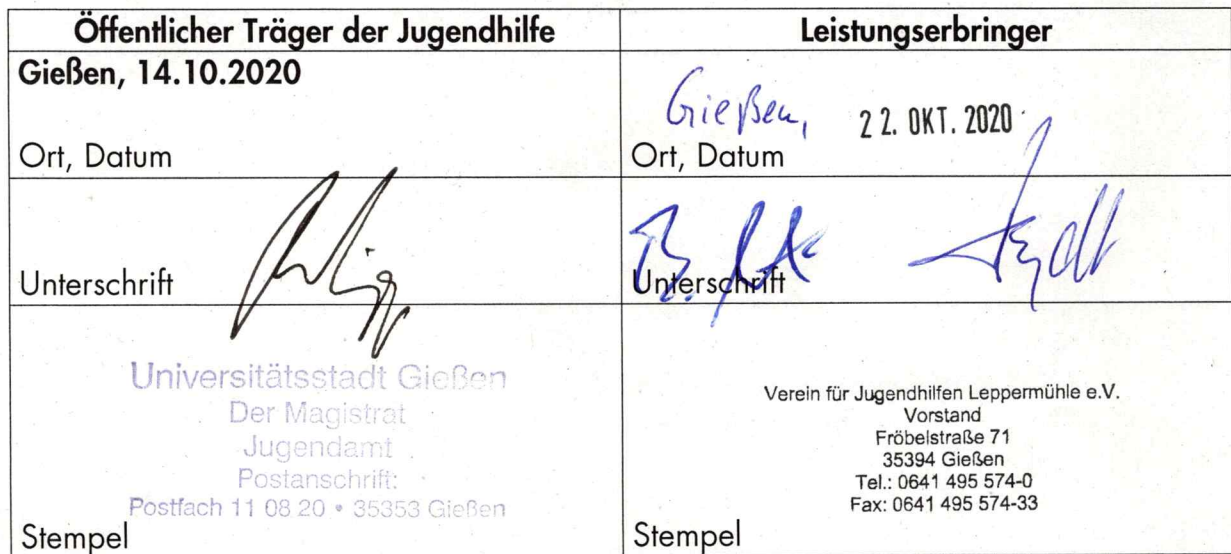 Öffentlicher Träger der Jugendhilfe
Leistungserbringer
Gießen, 14.10.2020
Ort, Datum
Gießen, 22. OKT. 2020
Ort, Datum
Unterschrift
Unterschrift
Universitätsstadt Gießen
Der Magistrat
Jugendamt
Postanschrift:
Postfach 11 08 20 • 35353 Gießen
Stempel
Verein für Jugendhilfen Leppermühle e.V.
Vorstand
Fröbelstraße 71
35394 Gießen
Tel.: 0641 495 574-0
Fax: 0641 495 574-33
Stempel